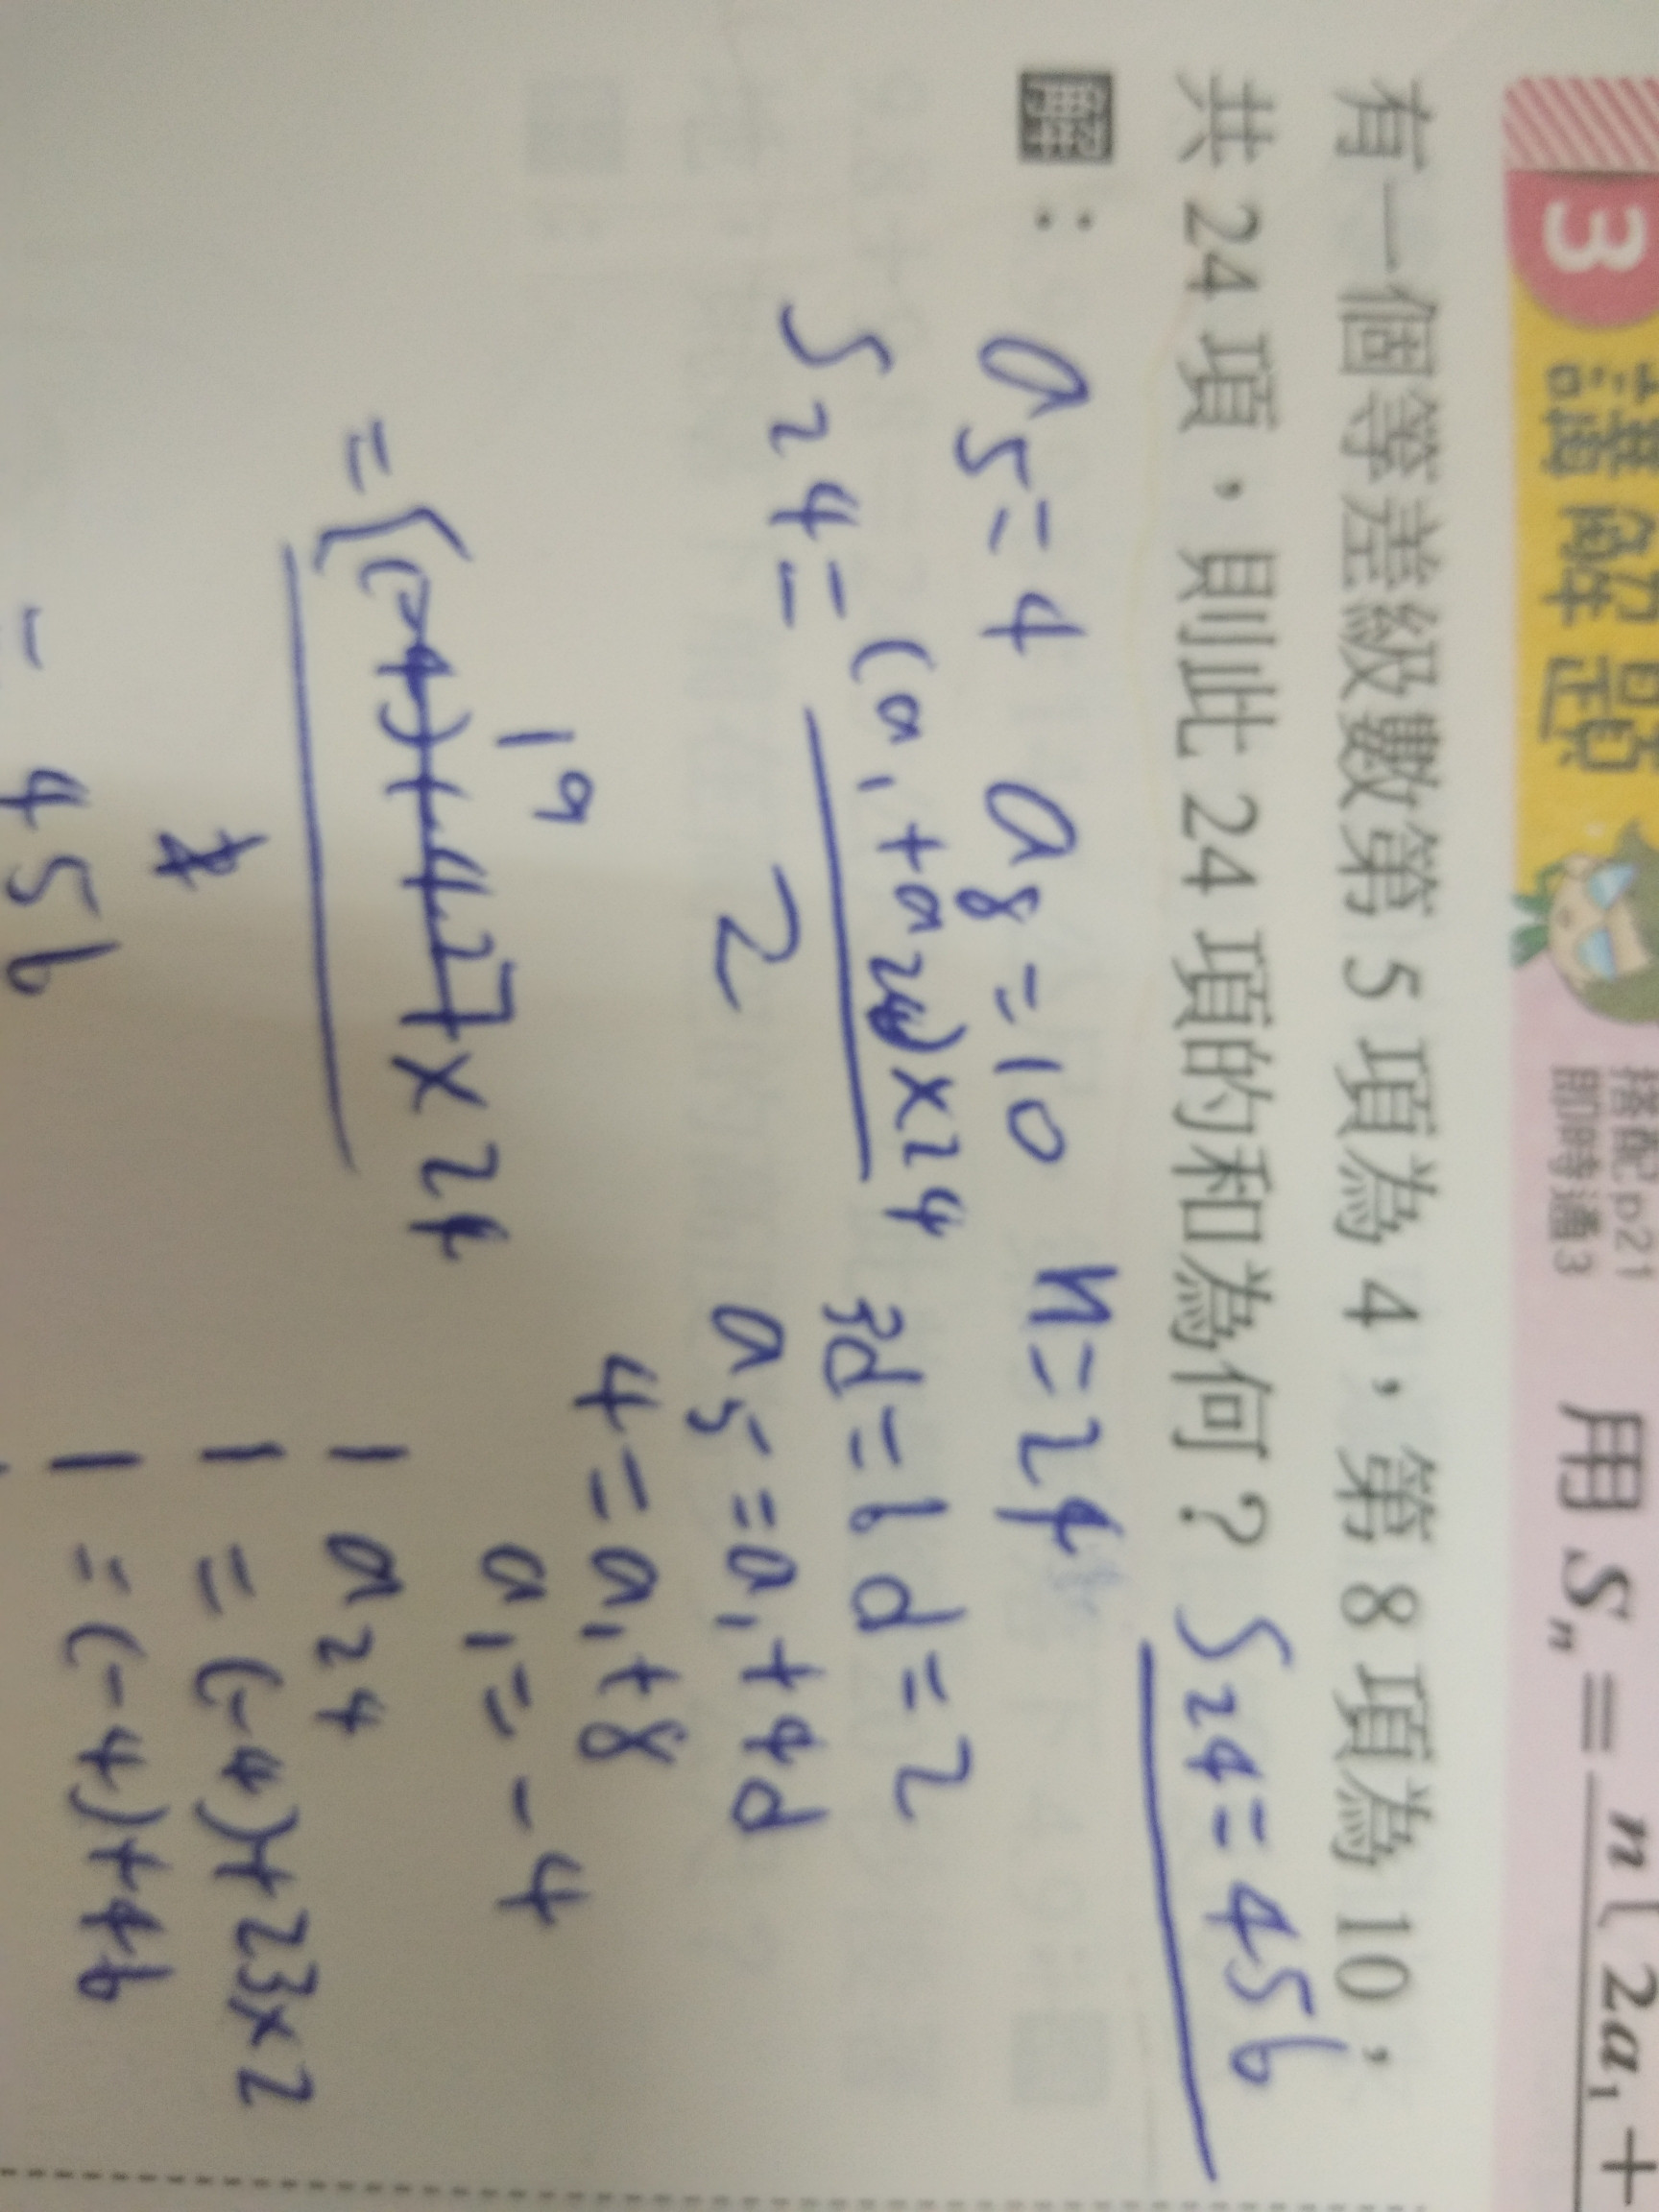 3 講解題 搭配p21 即時通3 用 Sₙ = n[2a₁+
有一個等差級數第 5 項為 4，第 8 項為 10，
共 24 項，則此 24 項的和為何？ S₂₄=456
解：
a₅=4 a₈=10 n=24
S₂₄=(a₁+a₂₄)×24
2
3d=6 d=2
a₅=a₁+4d
4=a₁+8
a₁=-4
19
×24
2
a₂₄
=(-4)+23×2
=(-4)+46
=456